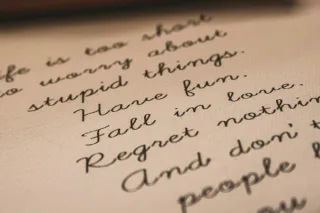 is too short
worry about
stupid things.
Have fun.
Fall in love.
Regret
And don't
people